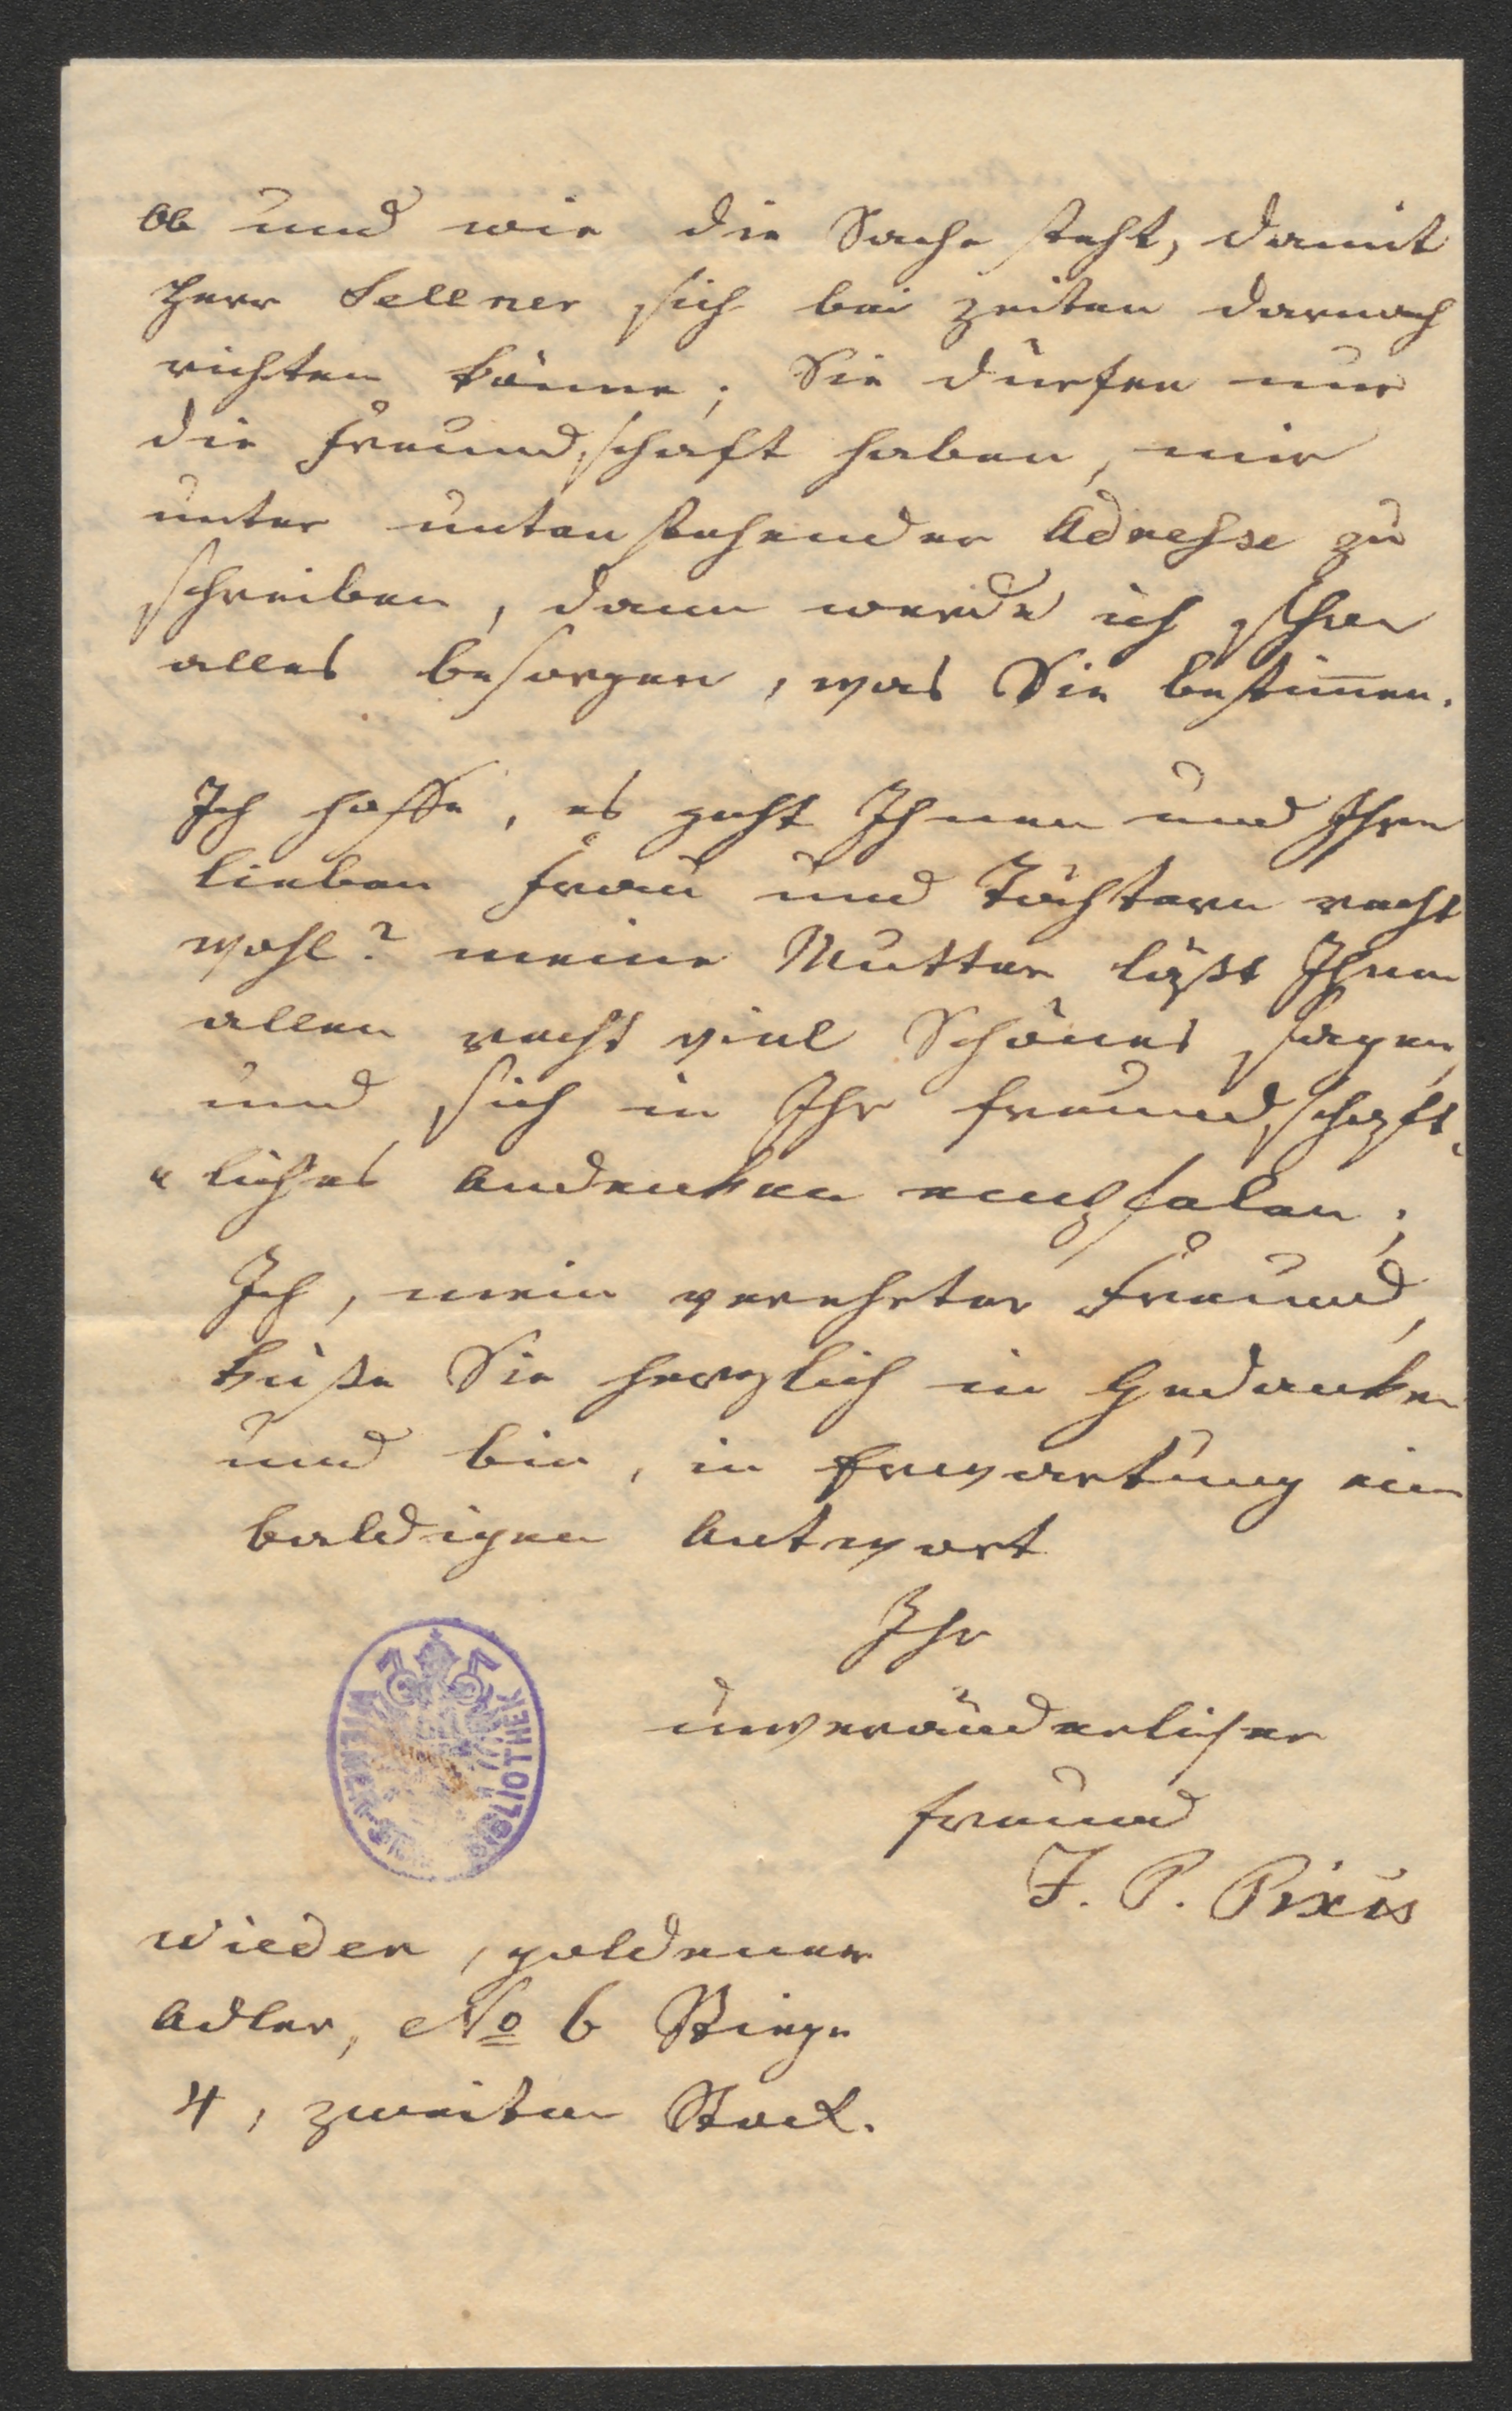 ob und wie die Sache steht, damit
Herr Sellner sich bei zeiten darnach
richten könne; Sie dürfen nur
die Freundschaft haben, mir
unter untenstehender Adresse zu
schreiben, dann werde ich schon
alles besorgen, was Sie bestim̅en.
Ich hoffe, es geht Ihnen und Ihrer
lieben Frau und Töchtern recht
wohl? meine Mutter läßt Ihnen
allen recht viel Schönes sagen,
und sich in Ihr freundschaft-
"liches Andenken empfelen;
Ich, mein verehrter Freund,
küße Sie herzlich in Gedanken
und bin, in Erwartung einer
baldigen Antwort
Ihr
unveränderlicher
Freund
J. P. Pixis
WIENER BIBLIOTHEK
Wieden, goldener
Adler, No 6 Stiege
4, zweiter Stock.